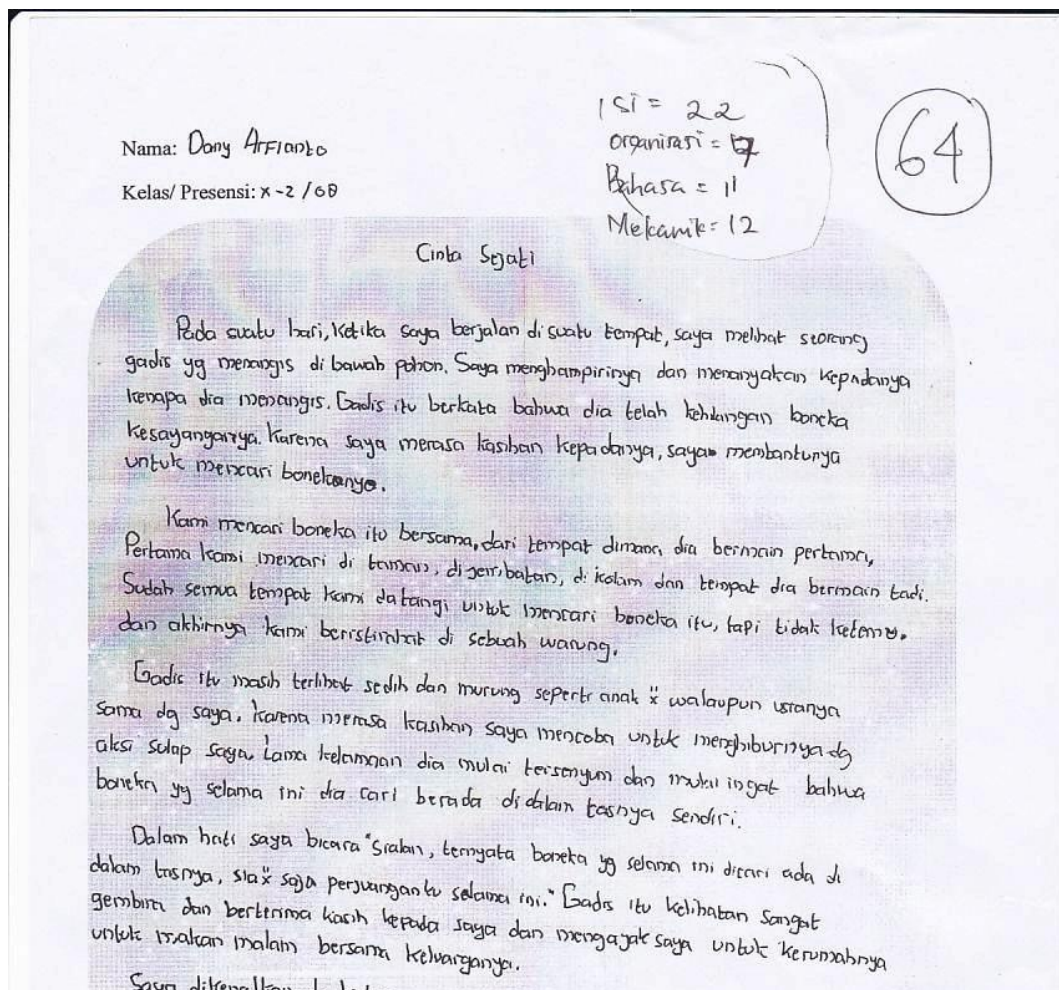 Isi = 22
Organisasi = 7
Bahasa = 11
Mekanik = 12
64
Nama: Dony Arfianto
Kelas/ Presensi: X-2 / 08
Cinta Sejati
Pada suatu hari, ketika saya berjalan di suatu tempat, saya melihat seorang
gadis yg menangis di bawah pohon. Saya menghampirinya dan menanyakan kepadanya
kenapa dia menangis. Gadis itu berkata bahwa dia telah kehilangan boneka
kesayangannya. Karena saya merasa kasihan kepadanya, saya membantunya
untuk mencari bonekanya.
Kami mencari boneka itu bersama, dari tempat dimana dia bermain pertama,
Pertama kami mencari di taman, di jembatan, di kolam dan tempat dia bermain tadi.
Sudah semua tempat kami datangi untuk mencari boneka itu, tapi tidak ketemu.
dan akhirnya kami beristirahat di sebuah warung.
Gadis itu masih terlihat sedih dan murung seperti anak" x walaupun usianya
sama dg saya. Karena merasa kasihan saya mencoba untuk menghiburnya dg
aksi sulap saya. Lama kelamaan dia mulai tersenyum dan mulai ingat bahwa
boneka yg selama ini dia cari berada di dalam tasnya sendiri.
Dalam hati saya bicara "Sialan, ternyata boneka yg selama ini dicari ada di
dalam tasnya, sia"x saja perjuanganku selama ini." Gadis itu kelihatan sangat
gembira dan berterima kasih kepada saya dan mengajak saya untuk kerumahnya
untuk makan malam bersama keluarganya.
Saya dikenalkan